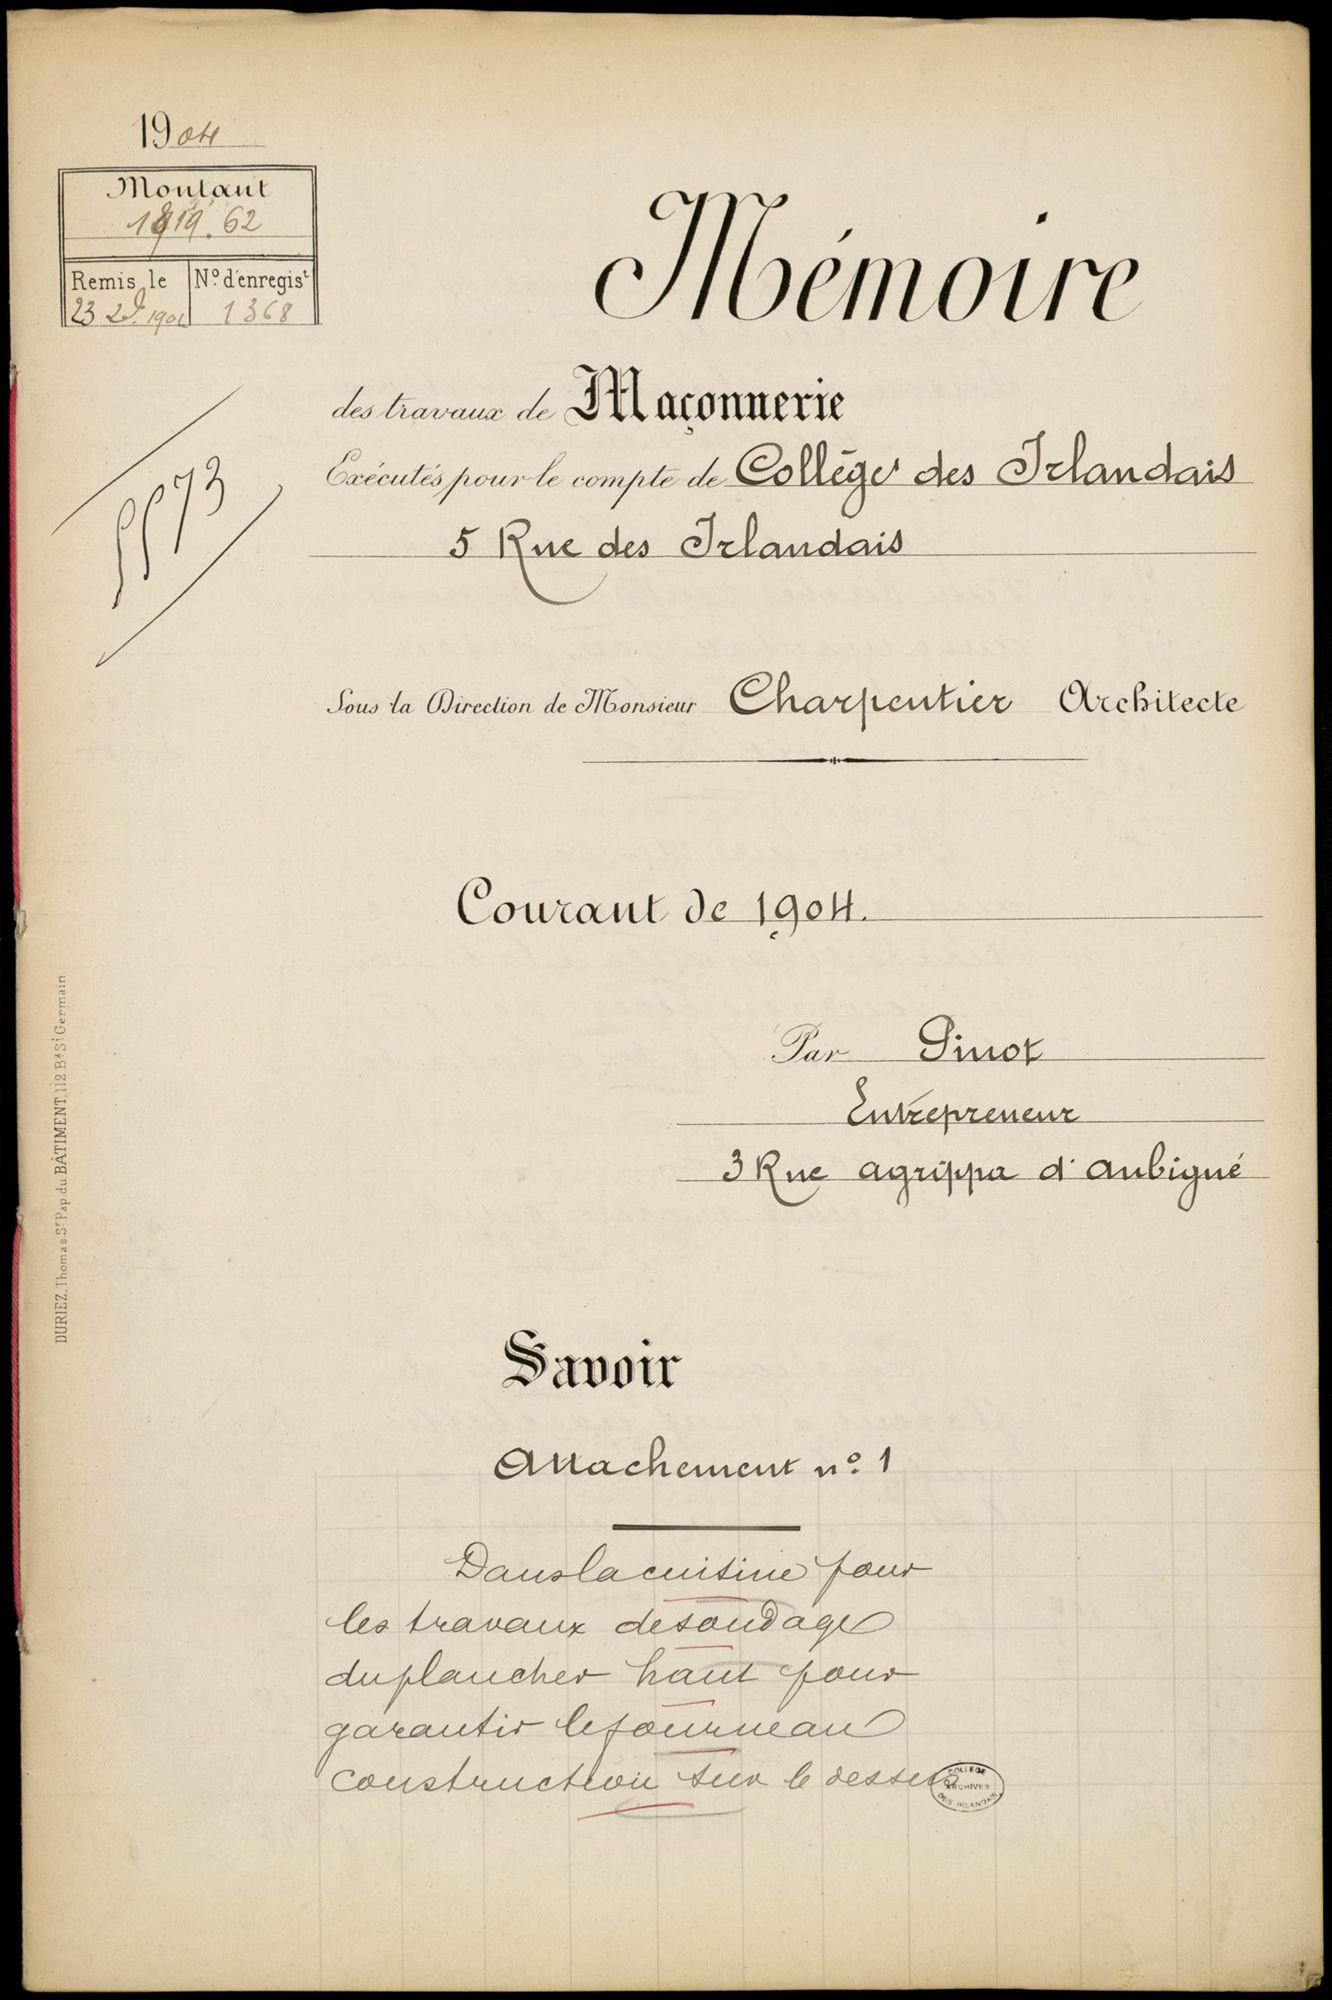 1904
Montant
1819.62
Remis le
N° d'enregist
23 1904
1368
Mémoire
des travaux de Maçonnerie
Exécutés pour le compte de Collège des Irlandais
5 Rue des Irlandais
5573
Sous la Direction de Monsieur Charpentier Architecte
Courant de 1904.
Par Pinot
Entrepreneur
3 Rue Agrippa d'Aubigné
DURIEZ, Thomas Sr Pap. du BÂTIMENT, 112 Bd St Germain
Savoir
Attachement n° 1
Dans la cuisine pour
les travaux de sondage
du plancher haut pour
garantir le fourneau
construction sur le dessus
COLLEGE
ARCHIVES
DES IRLANDAIS